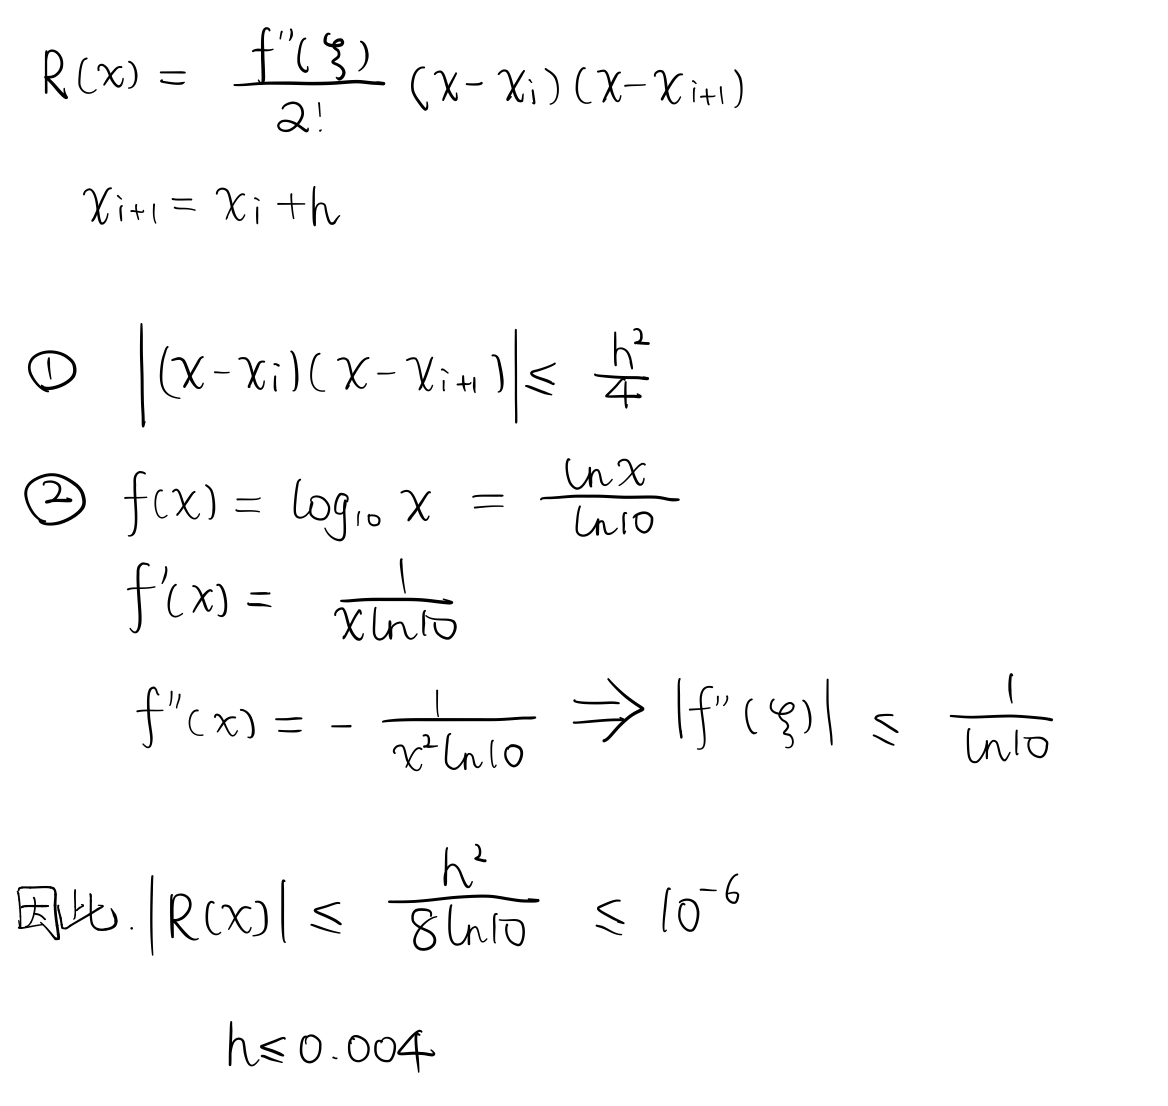 R(x) = f''(ξ)/2! (x-xᵢ)(x-xᵢ₊₁)
xᵢ₊₁ = xᵢ + h
① |(x-xᵢ)(x-xᵢ₊₁)| ≤ h²/4
② f(x) = log₁₀ x = ln x/ln10
f'(x) = 1/(x ln10)
f''(x) = - 1/(x² ln10) ⇒ |f''(ξ)| ≤ 1/ln10
因此. |R(x)| ≤ h²/(8 ln10) ≤ 10⁻⁶
h ≤ 0.004